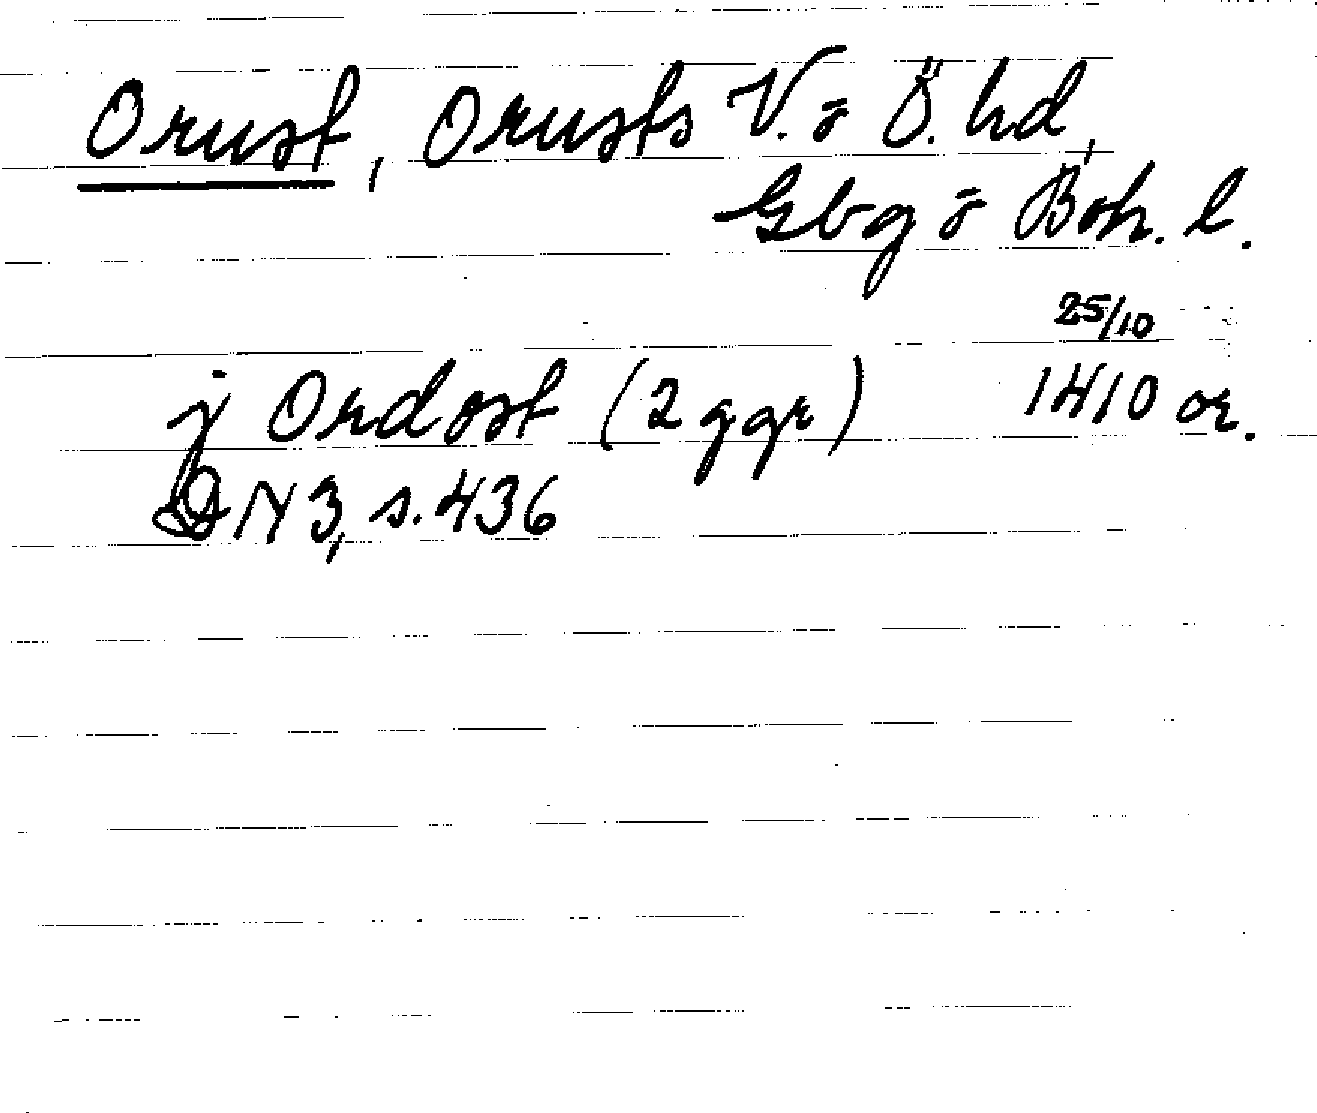 Orust, Orusts V. o Ö. hd,
Gbg o Boh. l.
25/10
j Ordost (2 ggr) 1410 or.
DN 3, s. 436